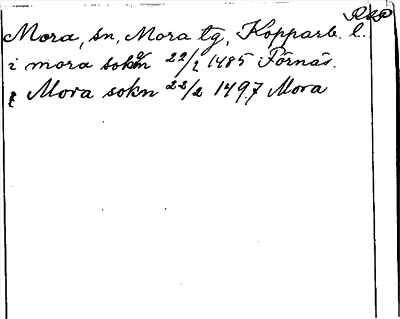 Mora, sn, Mora tg, Kopparb. l.
i mora sokn 22/2 1485 Fornäs.
Mora sokn 22/2 1497 Mora